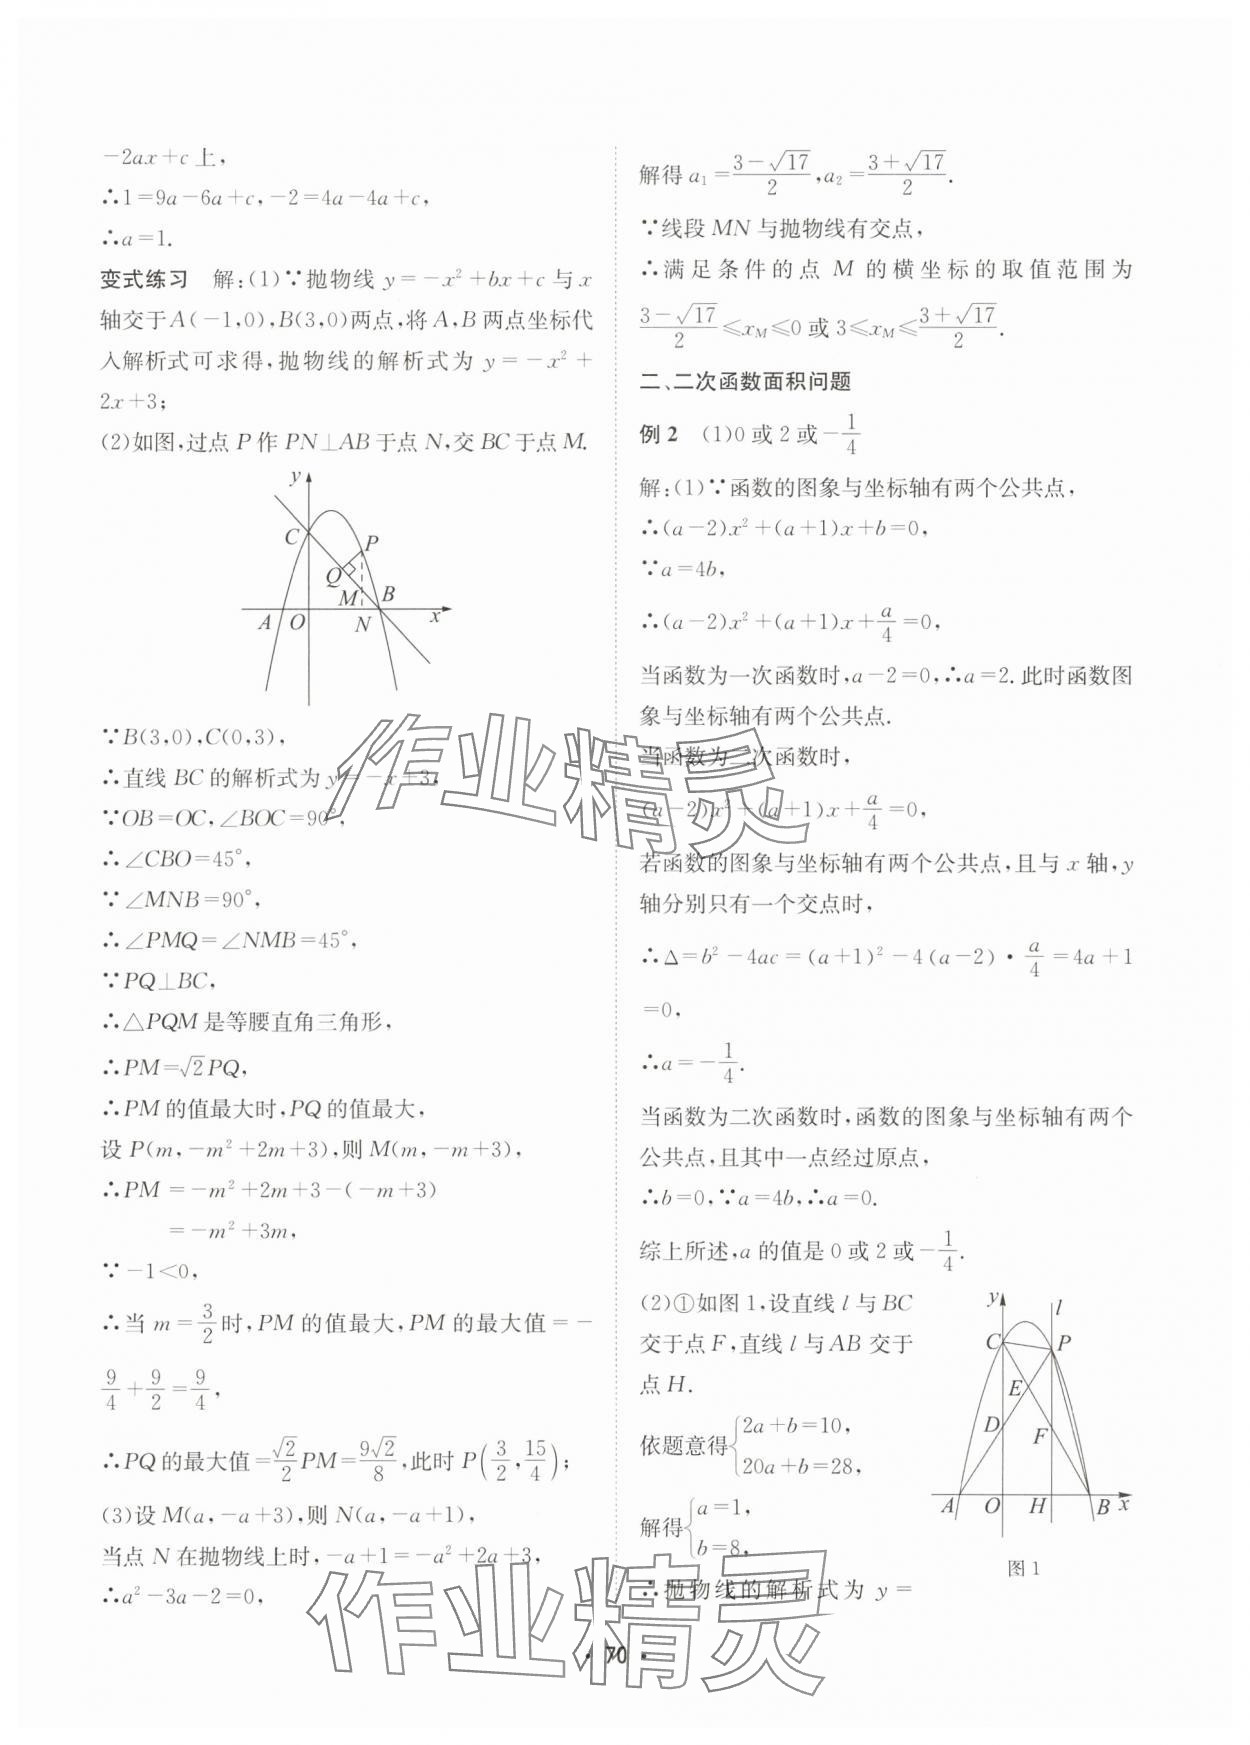 -2ax+c上，
∴1=9a-6a+c，-2=4a-4a+c，
∴a=1.
变式练习　解：(1)∵抛物线 y=-x²+bx+c 与 x
轴交于A(-1,0)，B(3,0)两点，将 A，B 两点坐标代
入解析式可求得，抛物线的解析式为 y=-x²+
2x+3；
(2)如图，过点 P 作 PN⊥AB于点 N，交 BC于点 M.
y
C
P
Q
M
B
A
O
N
x
∵B(3,0)，C(0,3)，
∴直线 BC 的解析式为 y=-x+3，
∵OB=OC，∠BOC=90°，
∴∠CBO=45°，
∵∠MNB=90°，
∴∠PMQ=∠NMB=45°，
∵PQ⊥BC，
∴△PQM 是等腰直角三角形，
∴PM=√2PQ，
∴PM 的值最大时，PQ 的值最大，
设 P(m，-m²+2m+3)，则 M(m，-m+3)，
∴PM =-m²+2m+3-(-m+3)
=-m²+3m，
∵-1<0，
∴当 m=3/2时，PM 的值最大，PM 的最大值=-
9/4+9/2=9/4，
∴PQ 的最大值=√2/2PM=9√2/8，此时 P(3/2，15/4)；
(3)设 M(a，-a+3)，则 N(a，-a+1)，
当点 N 在抛物线上时，-a+1=-a²+2a+3，
∴a²-3a-2=0，
解得 a₁=(3-√17)/2，a₂=(3+√17)/2.
∵线段 MN 与抛物线有交点，
∴满足条件的点 M 的横坐标的取值范围为
(3-√17)/2≤x_M≤0 或 3≤x_M≤(3+√17)/2.
二、二次函数面积问题
例 2　(1)0 或 2 或-1/4
解：(1)∵函数的图象与坐标轴有两个公共点，
∴(a-2)x²+(a+1)x+b=0，
∵a=4b，
∴(a-2)x²+(a+1)x+a/4=0，
当函数为一次函数时，a-2=0，∴a=2.此时函数图
象与坐标轴有两个公共点.
当函数为二次函数时，
(a-2)x²+(a+1)x+a/4=0，
若函数的图象与坐标轴有两个公共点，且与 x 轴，y
轴分别只有一个交点时，
∴Δ=b²-4ac=(a+1)²-4(a-2)·a/4=4a+1
=0，
∴a=-1/4.
当函数为二次函数时，函数的图象与坐标轴有两个
公共点，且其中一点经过原点，
∴b=0，∵a=4b，∴a=0.
综上所述，a 的值是 0 或 2 或-1/4.
(2)①如图 1，设直线 l 与 BC
交于点 F，直线 l 与 AB 交于
点 H.
依题意得{2a+b=10，
20a+b=28，
解得{a=1，
b=8，
∴抛物线的解析式为 y=
y
l
C
P
E
D
F
A
O
H
B
x
图 1
· 70 ·
作业精灵
作业精灵